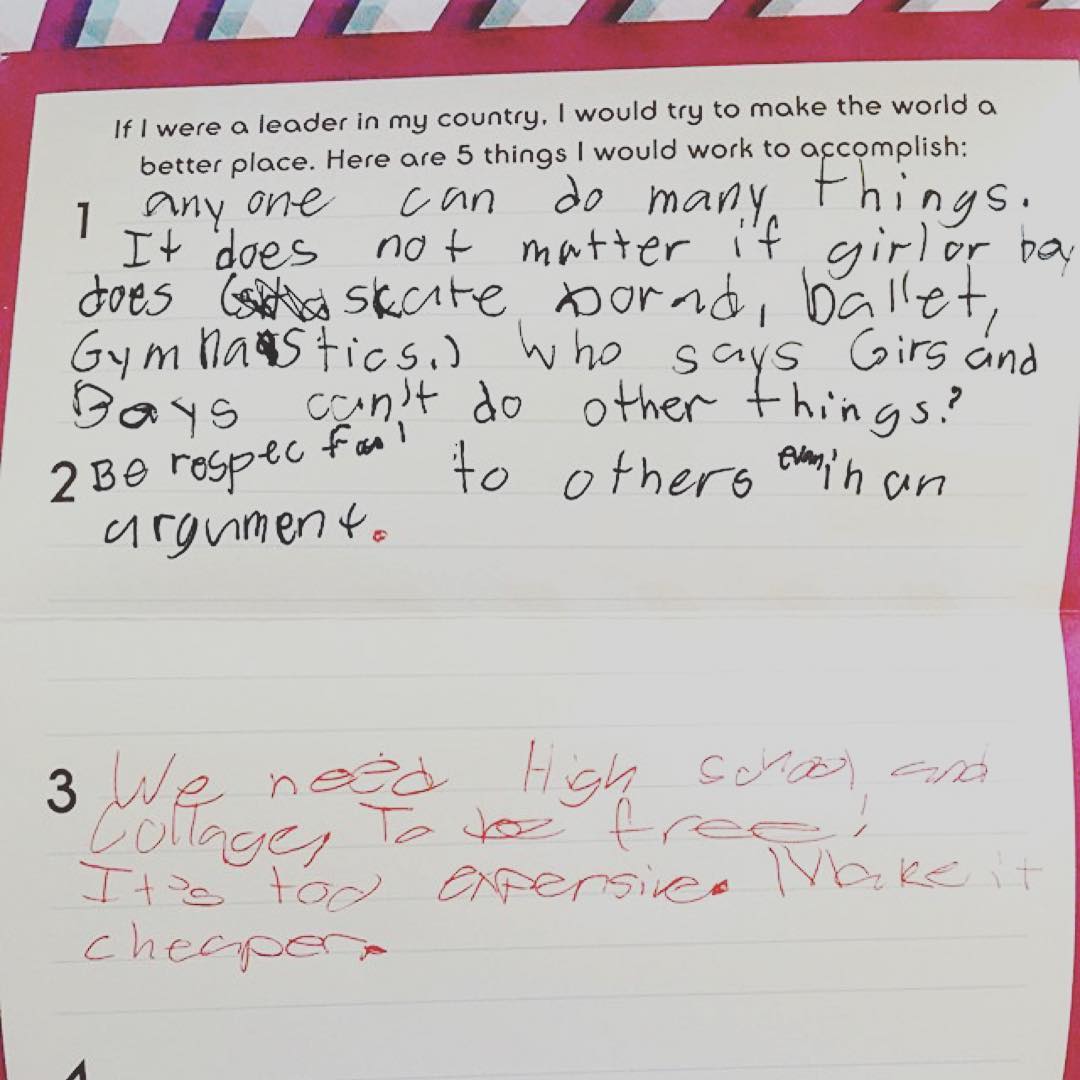 If I were a leader in my country, I would try to make the world a
better place. Here are 5 things I would work to accomplish:
1 any one can do many things.
It does not matter if girl or boy
does ( skate bornd, ballet,
Gymnastics.) Who says Girs and
Boys can't do other things?
2 Be respecfanl to others evan in an
argument.
3 We need High school and
Collage, To be free!
It's too expensive. Make it
cheaper.